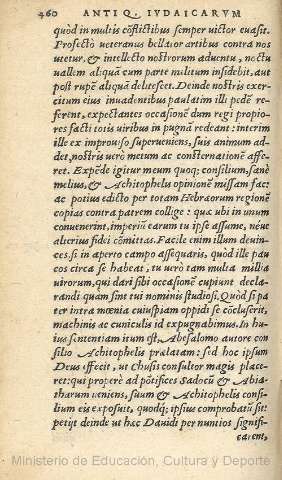 460 ANTIQ. IVDAICARVM
quòd in multis cõflictibus semper victor euasit.
Profectò veteranus bellator artibus contra nos
vtetur, & intellecto nostrorum aduentu, noctu
vallem aliquã cum parte militum insidebit, aut
post rupẽ aliquã delitescet. Deinde nostris exer-
citum eius inuadentibus paulatim illi pedẽ re-
ferent, expectantes occasionẽ dum regi propio-
res facti totis viribus in pugnã redeant: interim
ille ex improuiso superueniens, suis animum ad-
det, nostris verò metum ac consternationẽ affe-
ret. Expẽde igitur meum quoq; consilium, sanè
melius, & Achitophelis opinionẽ missam fac:
ac potius edicto per totam Hebræorum regionẽ
copias contra patrem collige: quæ vbi in vnum
conuenerint, imperiũ earum tu ipse assume, néue
alterius fidei cõmittas. Facile enim illum deuin-
ces, si in aperto campo assequaris, quòd ille pau
cos circa se habeat, tu verò tam multa millia
virorum, qui dari sibi occasionẽ cupiunt decla-
randi quam sint tui nominis studiosi. Quòd si pa
ter intra mœnia cuiuspiam oppidi se cõcluserit,
machinis ac cuniculis id expugnabimus. In hu-
ius sententiam itum est, Absalomo autore con
silio Achitophelis prælatam: sed hoc ipsum
Deus effecit, vt Chusis consultor magis place-
ret: qui properè ad põtifices Sadocũ & Abia-
tharum veniens, suum & Achitophelis consi-
lium eis exposuit, quodq; ipsius comprobatũ sit:
petijt deinde vt hæc Dauidi per nuntios signifi-
carent,
Ministerio de Educación, Cultura y Deporte